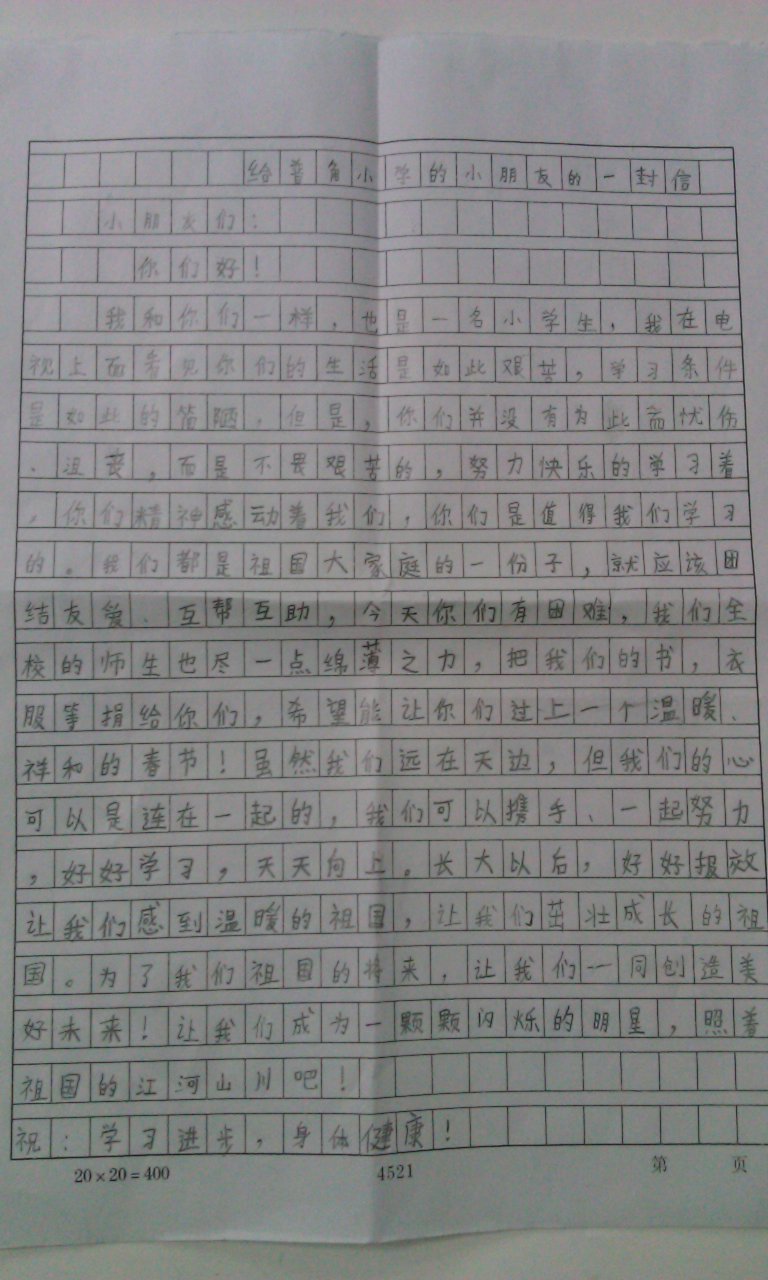 给普角小学的小朋友的一封信
小朋友们：
你们好！
我和你们一样，也是一名小学生，我在电
视上面看见你们的生活是如此艰苦，学习条件
是如此的简陋，但是，你们并没有为此而忧伤
、沮丧，而是不畏艰苦的，努力快乐的学习着
，你们精神感动着我们，你们是值得我们学习
的。我们都是祖国大家庭的一份子，就应该团
结友爱、互帮互助，今天你们有困难，我们全
校的师生也尽一点绵薄之力，把我们的书，衣
服等捐给你们，希望能让你们过上一个温暖、
祥和的春节！虽然我们远在天边，但我们的心
可以是连在一起的，我们可以携手、一起努力
，好好学习，天天向上。长大以后，好好报效
让我们感到温暖的祖国，让我们茁壮成长的祖
国。为了我们祖国的将来，让我们一同创造美
好未来！让我们成为一颗颗闪烁的明星，照着
祖国的江河山川吧！
祝：学习进步，身体健康！
20×20=400 4521 第 页